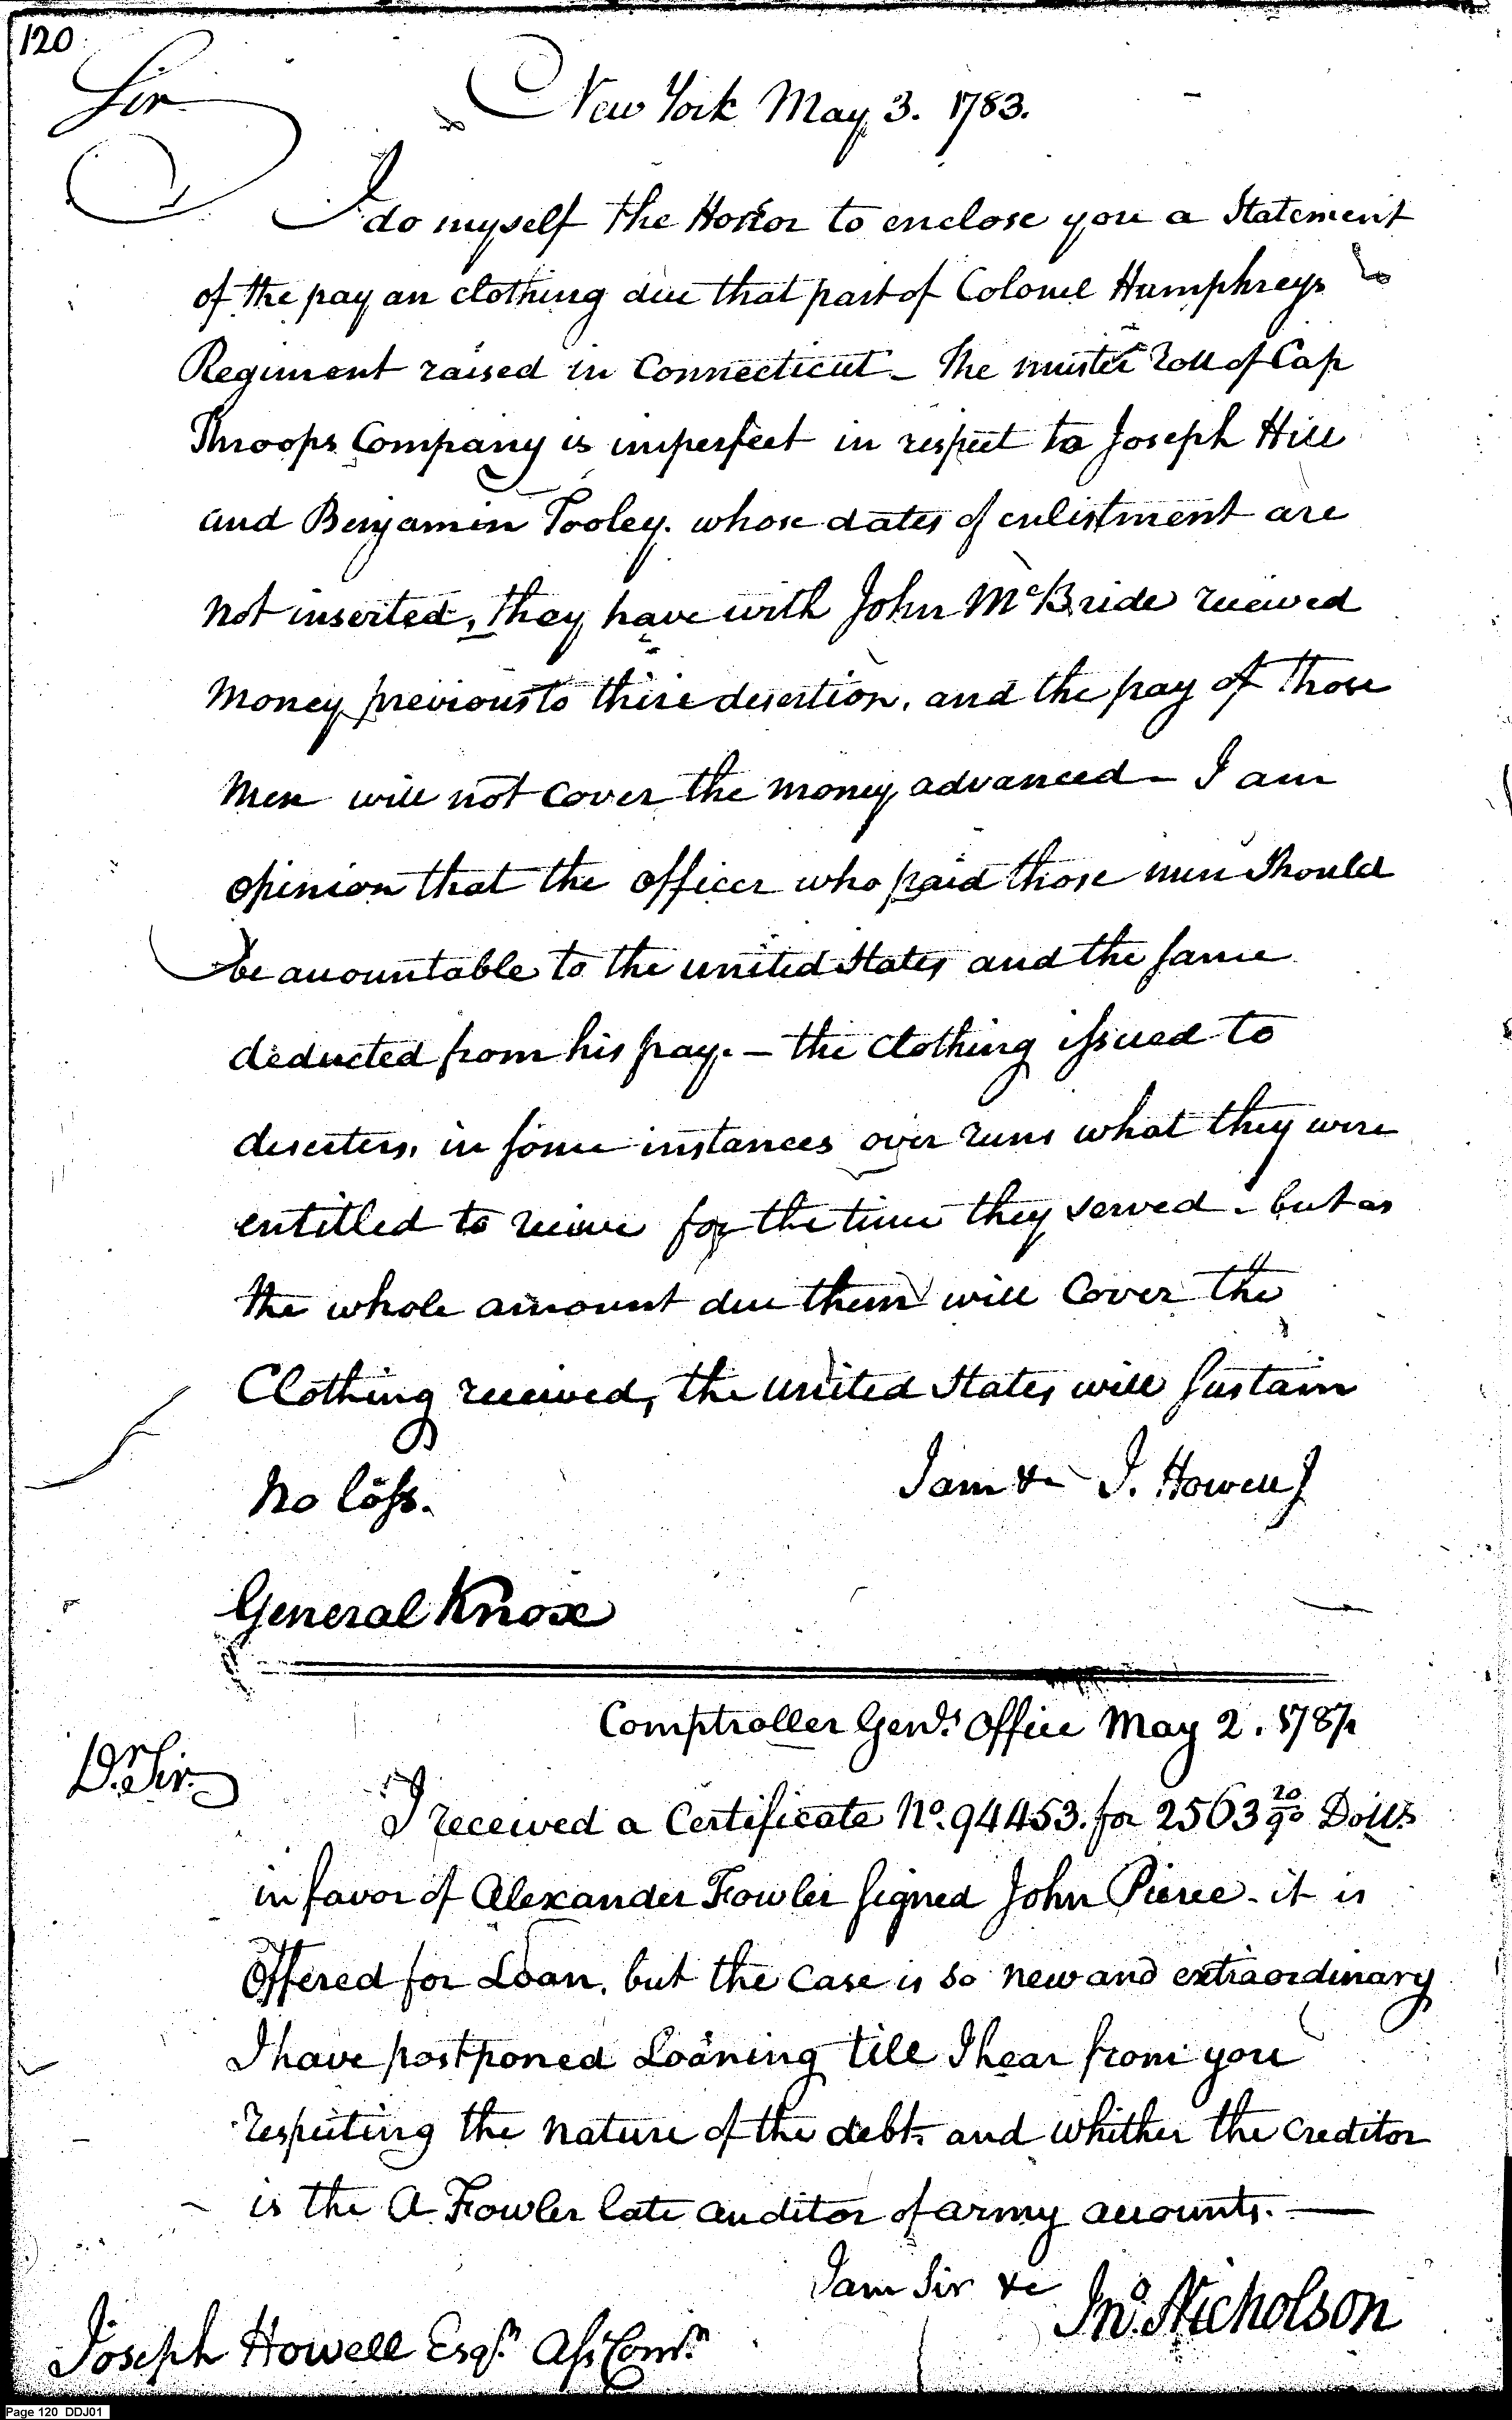 120
Sir
New York May 3. 1783.
I do myself the Honor to enclose you a Statement
of the pay an clothing due that part of Colonel Humphreys
Regiment raised in Connecticut - The muster roll of Cap
Throops Company is imperfect in respect to Joseph Hill
and Benjamin Tooley. whose dates of enlistment are
not inserted, they have with John McBride received
money previous to thire desertion, and the pay of those
men will not cover the money advanced - I am
opinion that the officer who paid those men Should
be accountable to the united States and the same
deducted from his pay. - the clothing issued to
deserters, in some instances over runs what they were
entitled to receive for the time they served - but as
the whole amount due them will Cover the
Clothing received, the united States will sustain
no loss.
I am &c J. Howell J
General Knox
Comptroller Genls Office May 2. 1787
Dr Sir.
I received a Certificate No. 94453. for 2563 20/90 Dolls
in favor of Alexander Fowler signed John Pierce - it is
Offered for Loan, but the case is so new and extraordinary
I have postponed Loaning till I hear from you
respecting the nature of the debt, and whither the Creditor
is the A Fowler late auditor of army accounts. —
I am Sir &c
Jno. Nicholson
Joseph Howell Esqr. Ass Comr.
Page 120 DDJ01